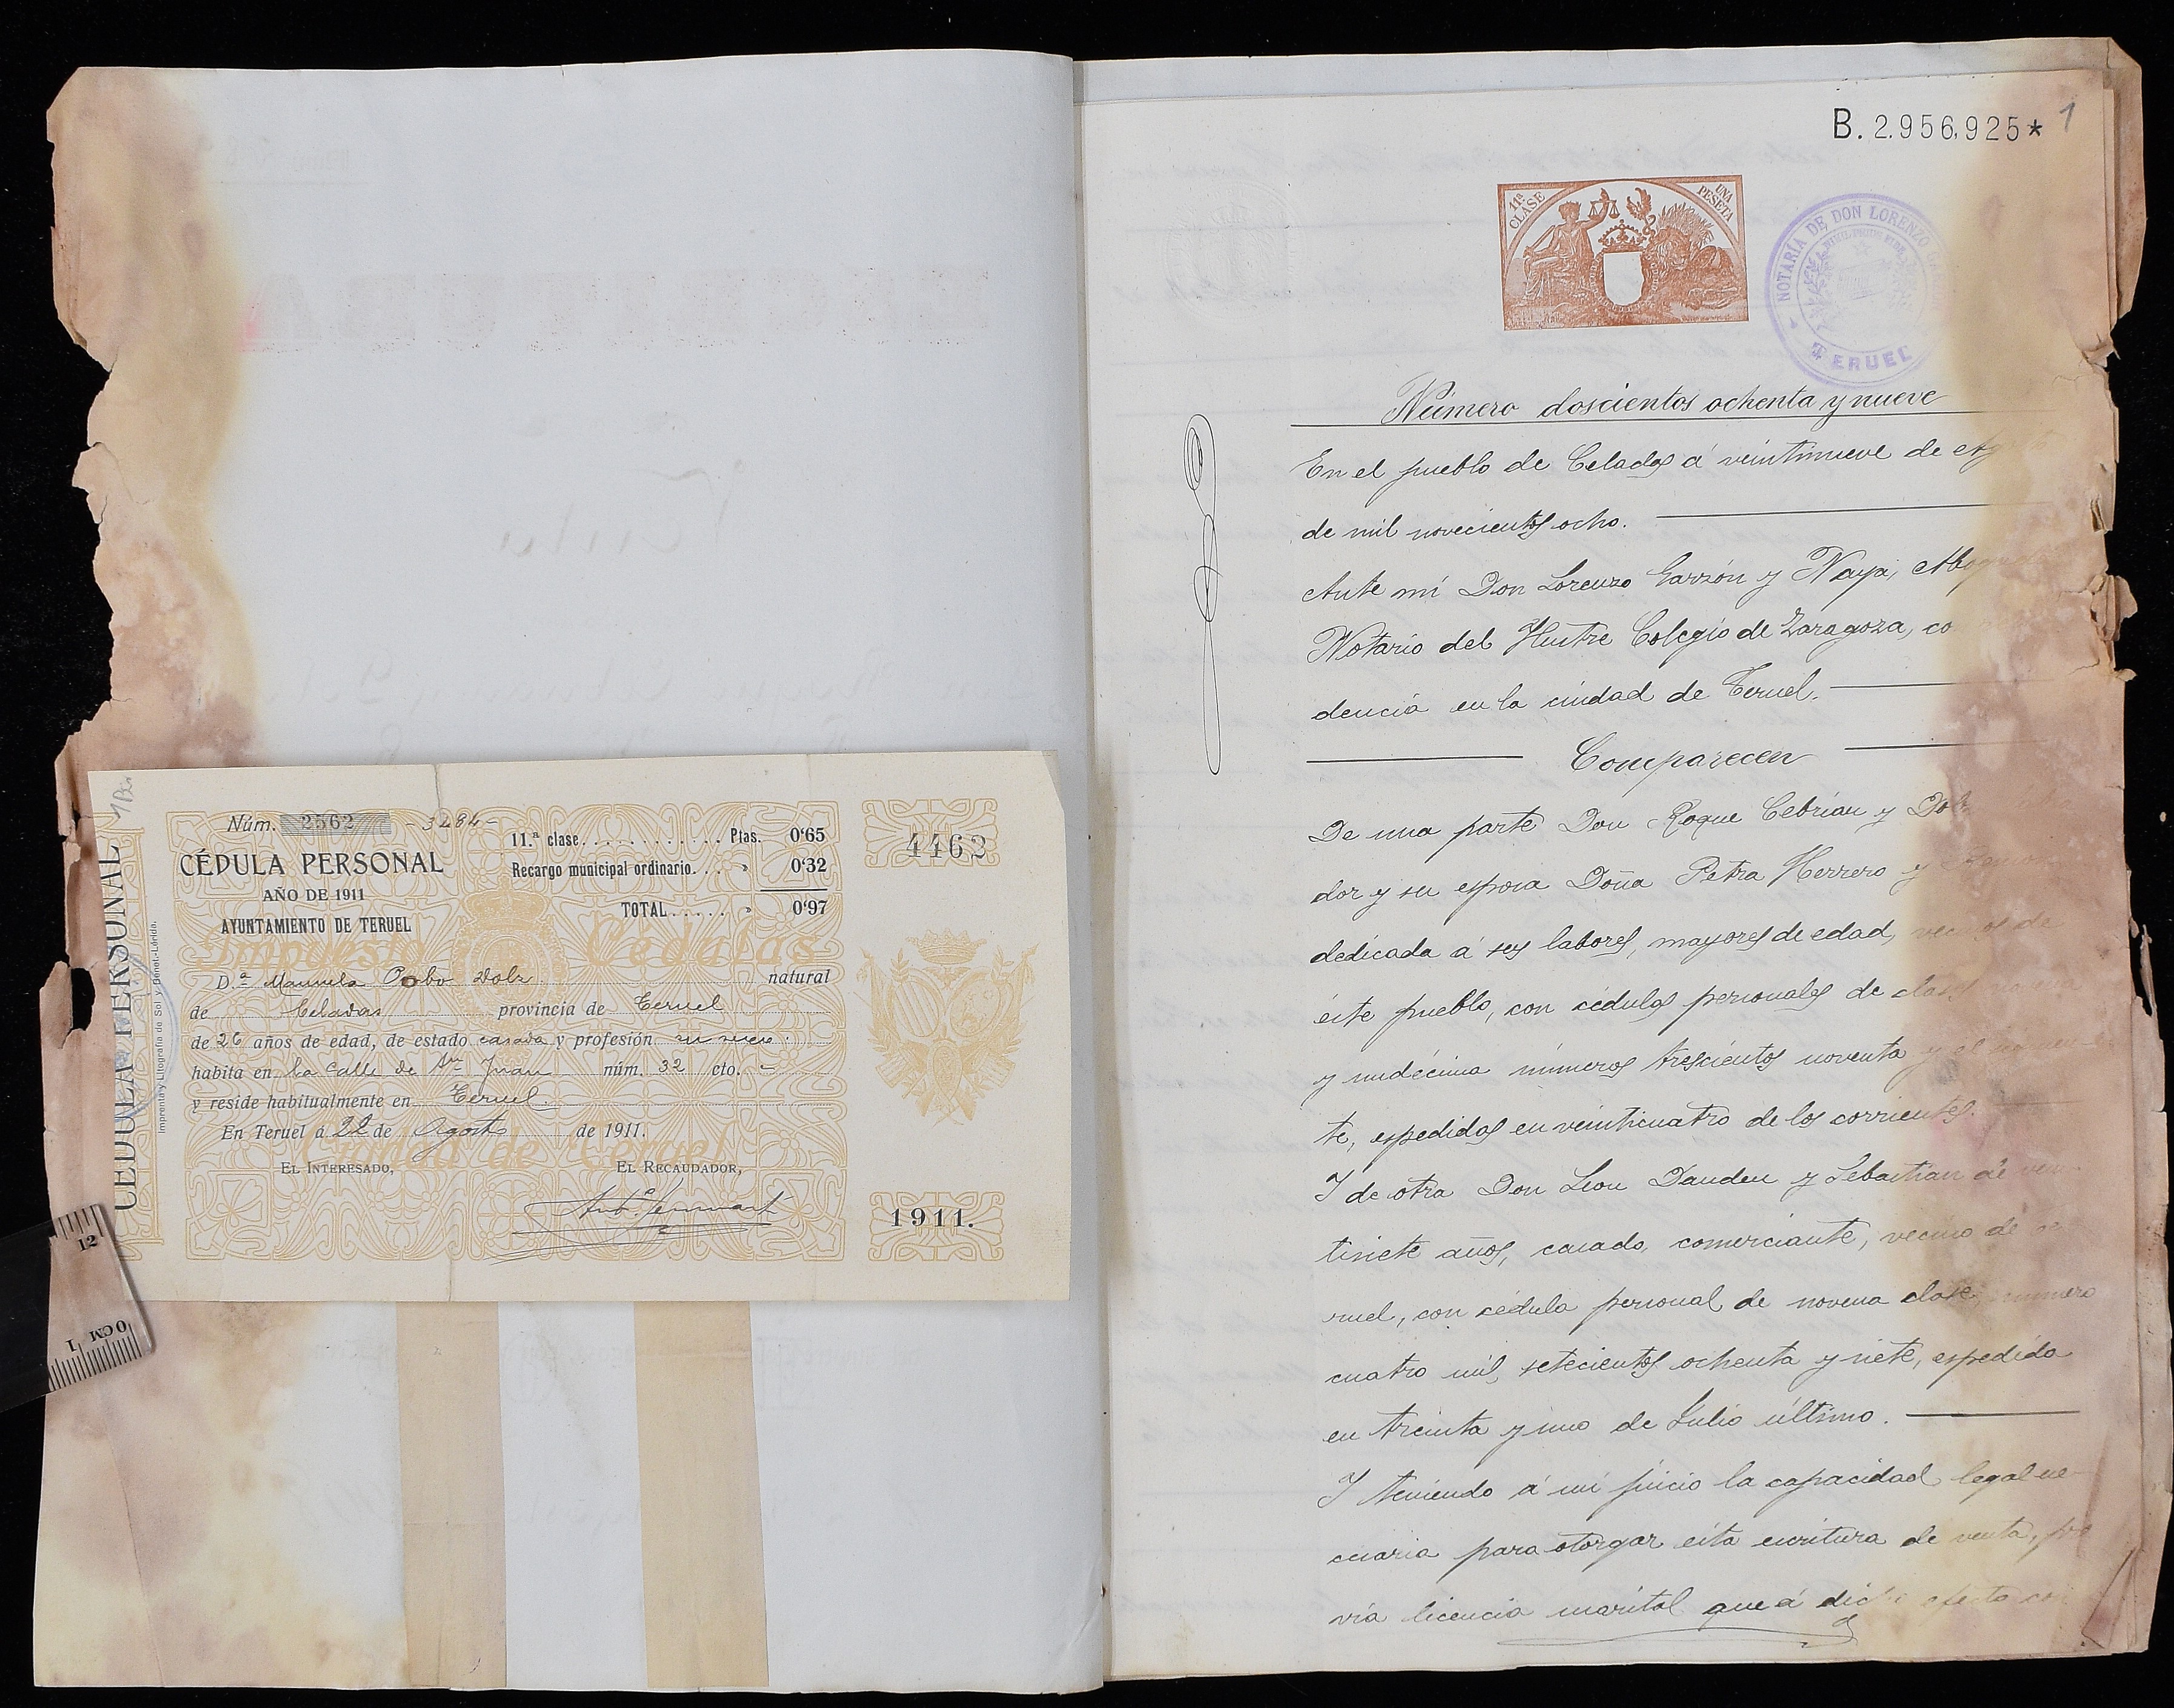 Núm. 2562 - 3484 -
CÉDULA PERSONAL
AÑO DE 1911
AYUNTAMIENTO DE TERUEL
11.ª clase............ Ptas. 0'65
Recargo municipal ordinario... » 0'32
TOTAL..... » 0'97
Impuesto Cédulas
D.ª Manuela Pobo Dolz natural
de Celadas provincia de Teruel
de 26 años de edad, de estado casada y profesión su sexo
habita en la Calle de Sn Juan núm. 32 cto. -
y reside habitualmente en Teruel
En Teruel á 22 de Agosto de 1911.
Ciudad de Teruel
EL INTERESADO,
EL RECAUDADOR,
4462
1911.
CÉDULA PERSONAL
Imprenta y Litografía de Sol y Benet-Lérida.
12
1 0CM
B. 2.956,925* 1
11ª CLASE
UNA PESETA
NOTARÍA DE DON LORENZO
NIHIL PRIUS FIDE
TERUEL
Número doscientos ochenta y nueve
En el pueblo de Celadas á veintinueve de
de mil novecientos ocho.
Ante mí Don Lorenzo Garzón y Naya, Abogado
Notario del Ilustre Colegio de Zaragoza, co
dencia en la ciudad de Teruel.
Comparecen
De una parte Don Roque Cebrian y Dolz
dor y su esposa Doña Petra Herrero y
dedicada á sus labores, mayores de edad, vecinos de
éste pueblo, con cédulas personales de clases novena
y undécima números trescientos noventa y el siguien-
te, espedidas en veinticuatro de los corrientes.
Y de otra Don Leon Dauden y Sebastian de vein-
tisiete años, casado, comerciante, vecino de Te-
ruel, con cédula personal de novena clase, número
cuatro mil, setecientos ochenta y siete, espedida
en treinta y uno de Julio último.
Y teniendo á mi juicio la capacidad legal ne-
cesaria para otorgar esta escritura de venta, pre
vía licencia marital que á dicho efecto con